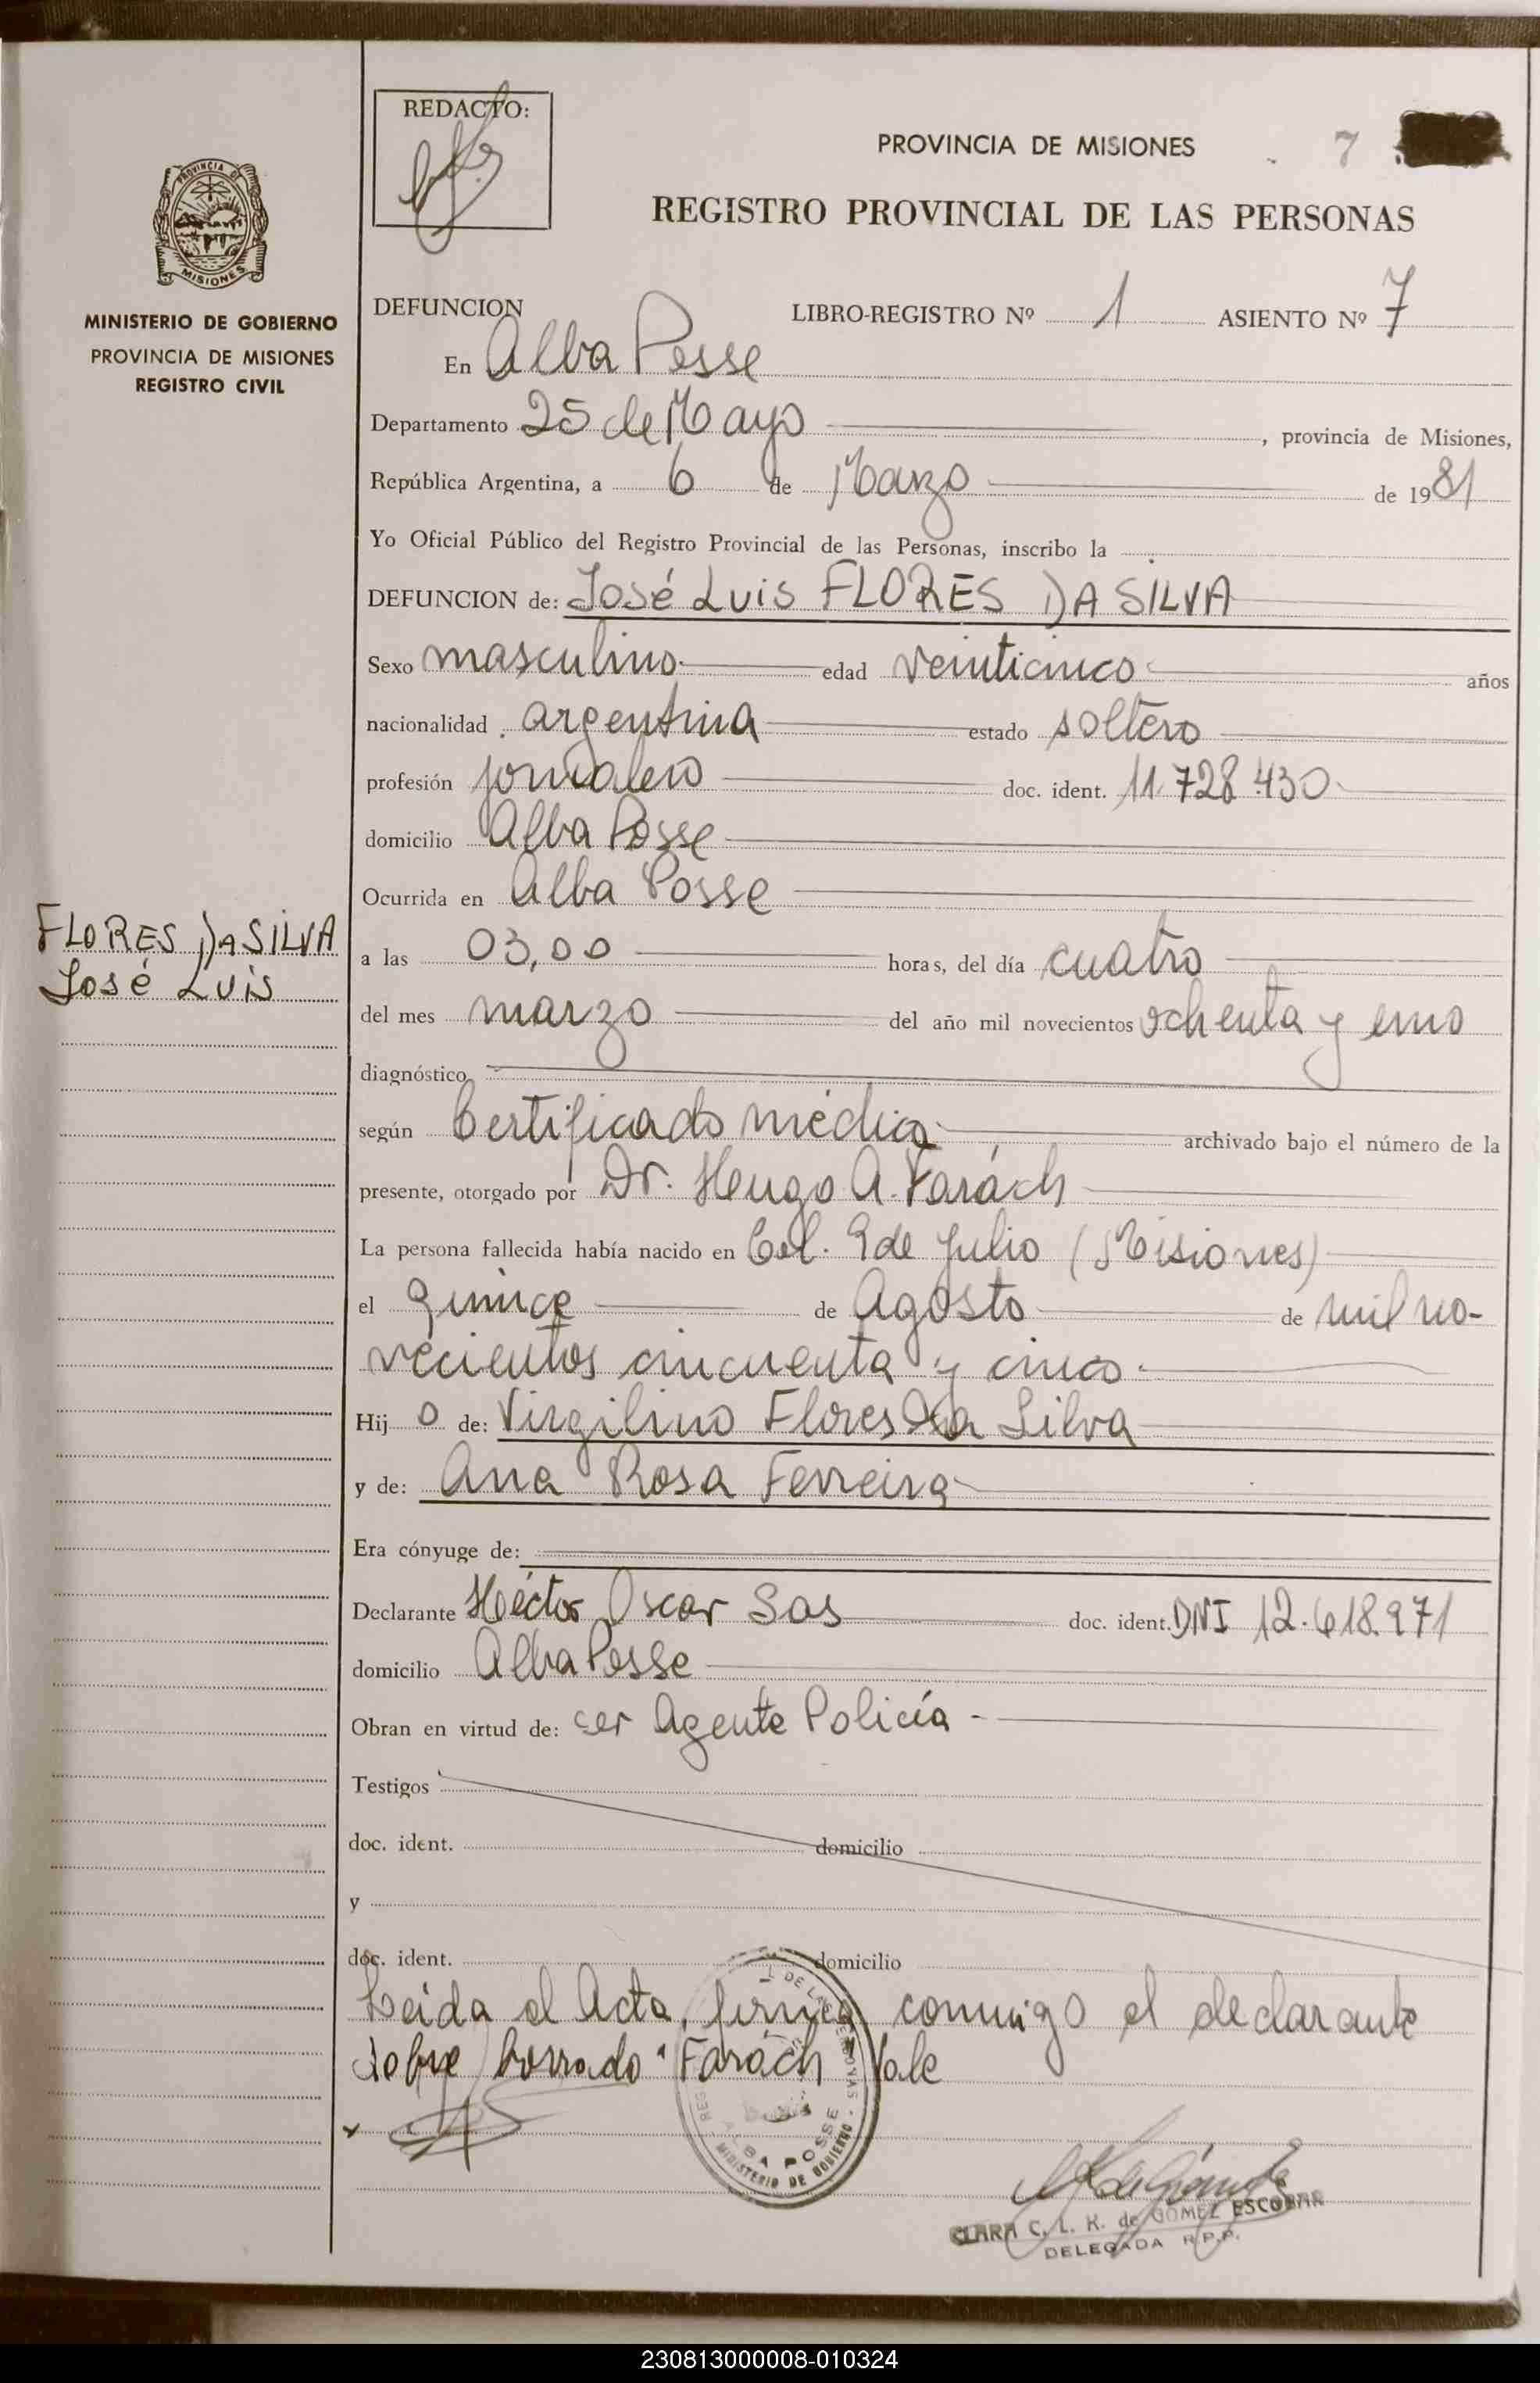 REDACTO:
PROVINCIA DE MISIONES
7
REGISTRO PROVINCIAL DE LAS PERSONAS
PROVINCIA DE
MISIONES
MINISTERIO DE GOBIERNO
PROVINCIA DE MISIONES
REGISTRO CIVIL
DEFUNCION LIBRO-REGISTRO Nº 1 ASIENTO Nº 7
En Alba Posse
Departamento 25 de Mayo, provincia de Misiones,
República Argentina, a 6 de Marzo de 1981
Yo Oficial Público del Registro Provincial de las Personas, inscribo la
DEFUNCION de: José Luis FLORES DA SILVA
Sexo masculino edad veinticinco años
nacionalidad argentina estado soltero
profesión jornalero doc. ident. 11.728.430
domicilio Alba Posse
Ocurrida en Alba Posse
FLORES DA SILVA
José Luis
a las 03,00 horas, del día cuatro
del mes marzo del año mil novecientos ochenta y uno
diagnóstico
según Certificado médico archivado bajo el número de la
presente, otorgado por Dr. Hugo A. Farách
La persona fallecida había nacido en Col. 9 de Julio (Misiones)
el quince de Agosto de mil no-
vecientos cincuenta y cinco
Hij o de: Virgilino Flores Da Silva
y de: Ana Rosa Ferreira
Era cónyuge de:
Declarante Héctor Oscar Sas doc. ident. DNI 12.618.971
domicilio Alba Posse
Obran en virtud de: ser Agente Policía -
Testigos
doc. ident. domicilio
y
doc. ident. domicilio
Leida el Acta, firma conmigo el declarante
sobre borrado "Farách Vale
ALBA POSSE
MINISTERIO DE GOBIERNO
CLARA C. L. K. de GOMEZ ESCOBAR
DELEGADA R.P.P.
230813000008-010324